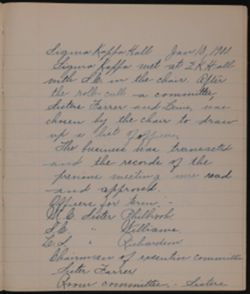 Sigma Kappa Hall Jan 10, 1901.
Sigma Kappa met at Σ.K. Hall
with S.E. in the chair. After
the roll-call a committee,
Sisters Farrer and was
chosen by the chair to draw
up a list of officers.
The business was transacted
and the records of the
previous meeting were read
and approved.
Officers for term:-
W.E. Sister Philbrook
S.E. " Williams
" Richardson
Chairman of executive committee
Sister Farrer
Room committee - Sisters